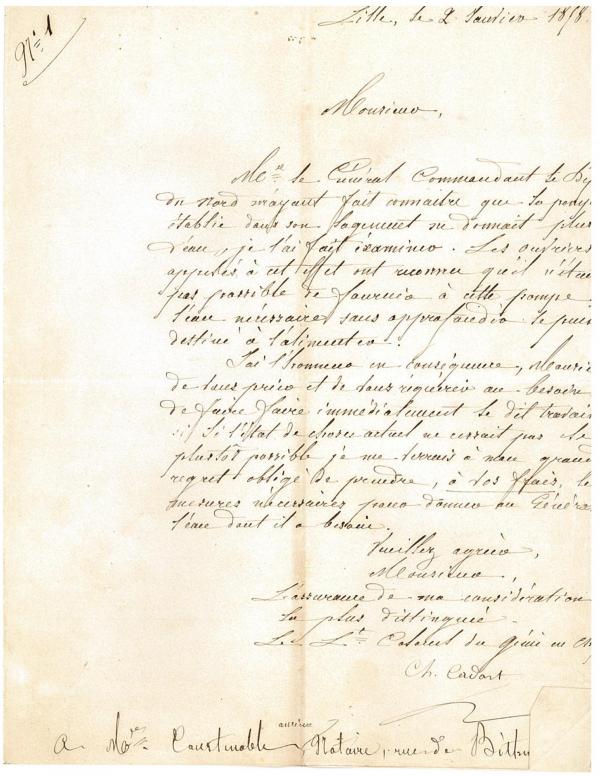 N° 1
Lille, le 2 Janvier 1858.
Monsieur,
Mr le Général Commandant le
du Nord m'ayant fait connaitre que la pompe
établie dans son logement ne donnait plus
d'eau, je l'ai fait éxaminer. Les ouvriers
appelés à cet effet ont reconnu qu'il n'était
pas possible de fournir à cette pompe
l'eau nécessaire sans approfondir le puits
destiné à l'alimenter.
J'ai l'honneur en conséquence, Monsieur
de vous prier et de vous réquérir au besoin
de faire faire immédiatement le dit travail
Si l'état de choses actuel ne cessait pas le
plustôt possible je me verrais à mon grand
regret obligé de prendre, à vos frais, les
mesures nécessaires pour donner au Général
l'eau dont il a besoin.
Veuillez agréer,
Monsieur,
L'assurance de ma considération
la plus distinguée.
Le Lt Colonel du génie en Ch
Ch. Cadart
ancien
A Mr Courtmoble Notaire, rue de